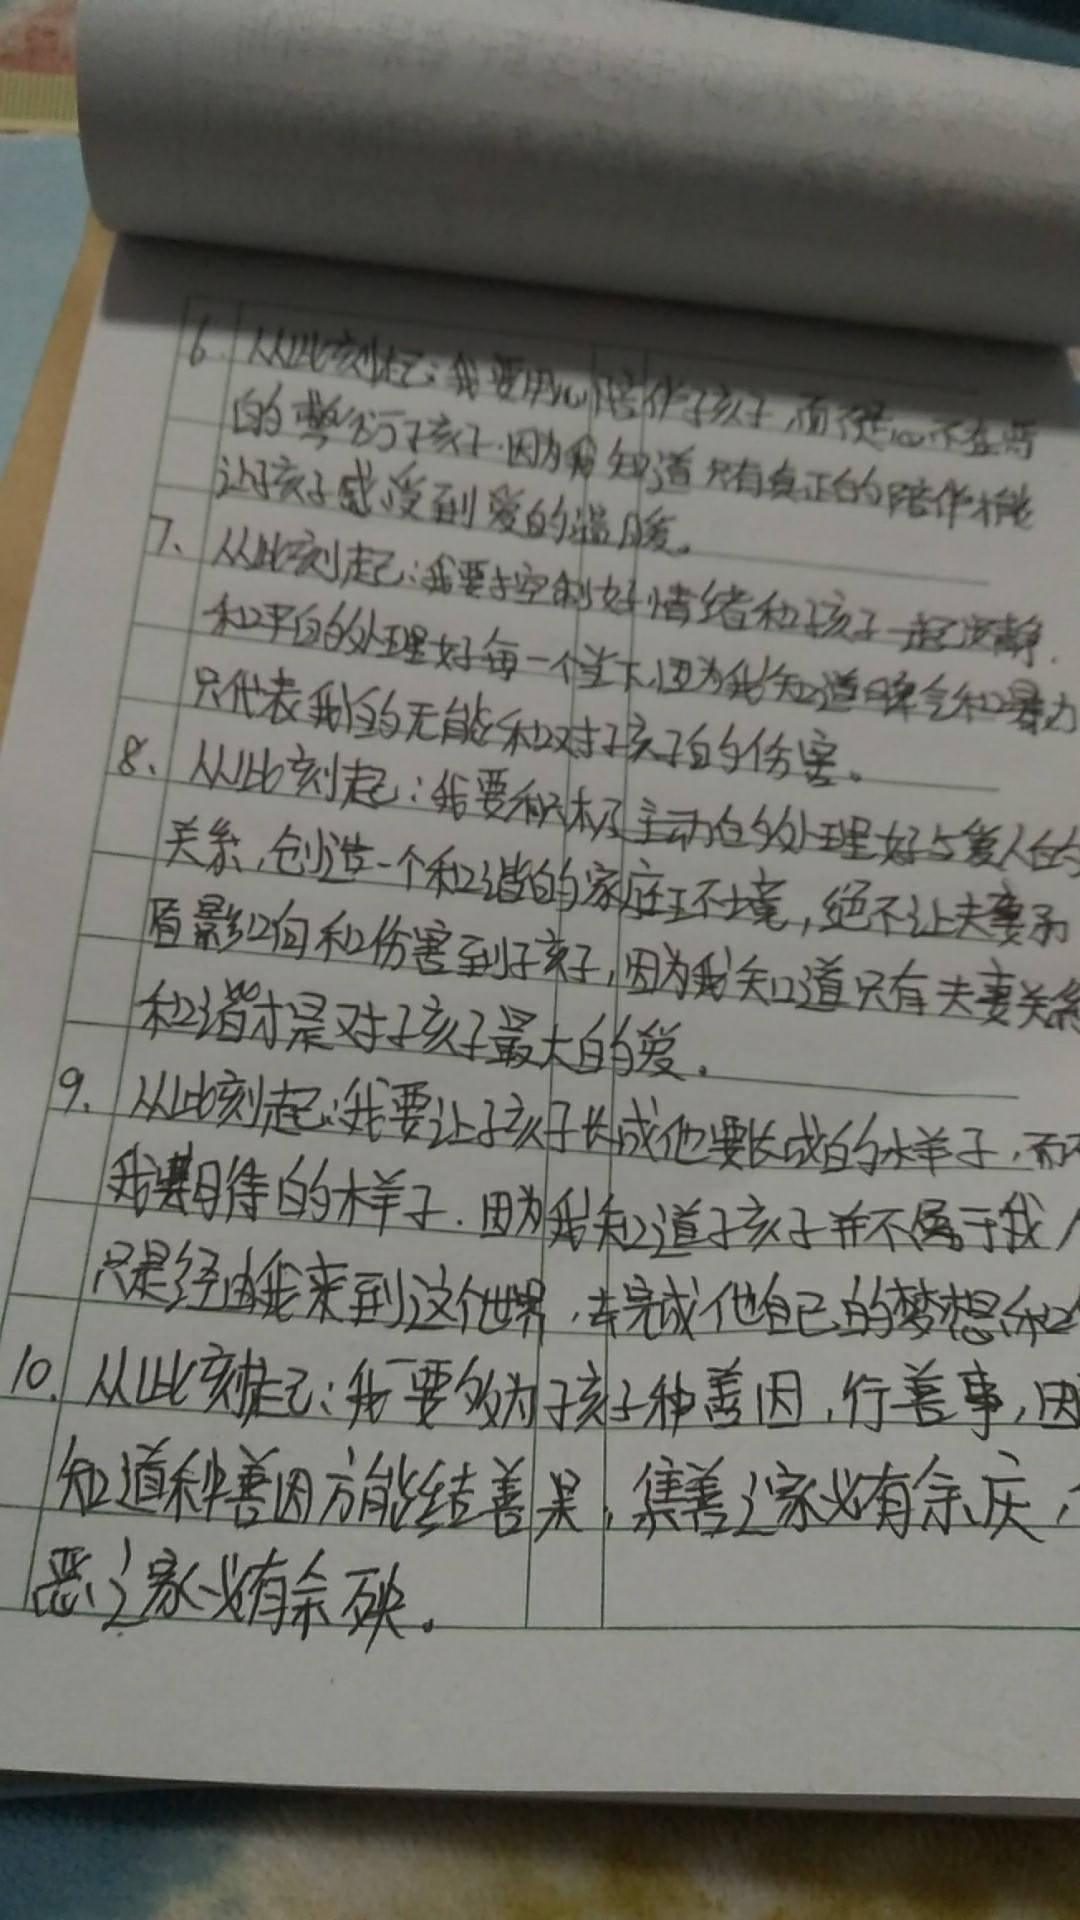 6. 从此刻起:我要用心陪伴孩子,而不是心不在焉
的敷衍孩子.因为我知道只有真正的陪伴才能
让孩子感受到爱的温暖。
7、从此刻起:我要控制好情绪和孩子一起安静.
和平的处理好每一个当下,因为我知道脾气和暴力
只代表我的无能和对孩子的伤害。
8、从此刻起:我要积极主动的处理好与爱人的
关系,创造一个和谐的家庭环境,绝不让夫妻矛
盾影响和伤害到孩子,因为我知道只有夫妻关系
和谐才是对孩子最大的爱。
9、从此刻起:我要让孩子长成他要长成的样子,而不
我期待的样子.因为我知道孩子并不属于我
只是经由我来到这个世界,去完成他自己的梦想和
10、从此刻起:我要多为孩子种善因,行善事,因
知道种善因方能结善果,集善之家必有余庆,
恶之家必有余殃。